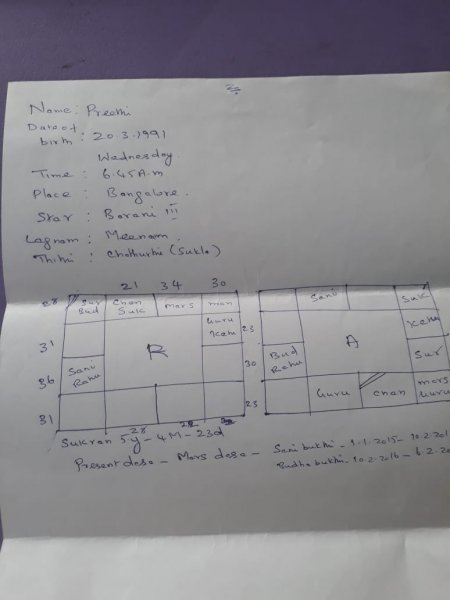 2.
Name: Preethi
Date of
birth : 20.3.1991
Wednesday.
Time : 6.45 A.m
Place : Bangalore.
Star : Barani III
Lagnam : Meenam.
Thithi : Chathurthi (Sukla)
28 21 34 30
Sur Bud Chan Suk mars man
Guru Kehu 23
31 R
Sani Rahu 30
36
31 23
28
Sani Suk
Kehu
Bud Rahu A Sur
Guru chan mars
Sukran 5y - 4.M - 23d
Present dasa - Mars dasa - Sani bukthi - 1.1.2015- 10.2.201
Budha bukthi - 10.2.2016 - 6.2.20